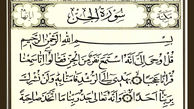 سورة الجن
بسم الله الرحمن الرحيم
قل أوحي إلي أنه استمع نفر من الجن فقالوا إنا سمعنا
قرآنا عجبا يهدي إلى الرشد فآمنا به ولن نشرك
بربنا أحدا وأنه تعالى جد ربنا ما اتخذ صاحبة